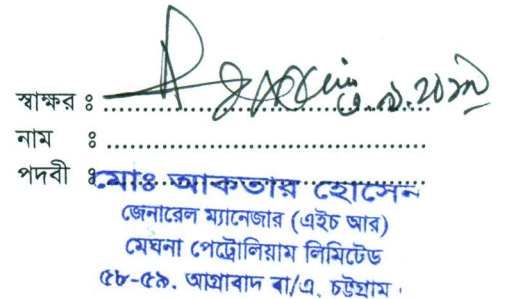 স্বাক্ষর ঃ
নাম ঃ
পদবী ঃ
মোঃ আকতার হোসেন
জেনারেল ম্যানেজার (এইচ আর)
মেঘনা পেট্রোলিয়াম লিমিটেড
৫৮-৫৯, আগ্রাবাদ বা/এ, চট্টগ্রাম।